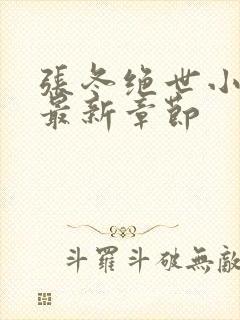 張冬绝世小
最新章節
斗羅斗破無敵